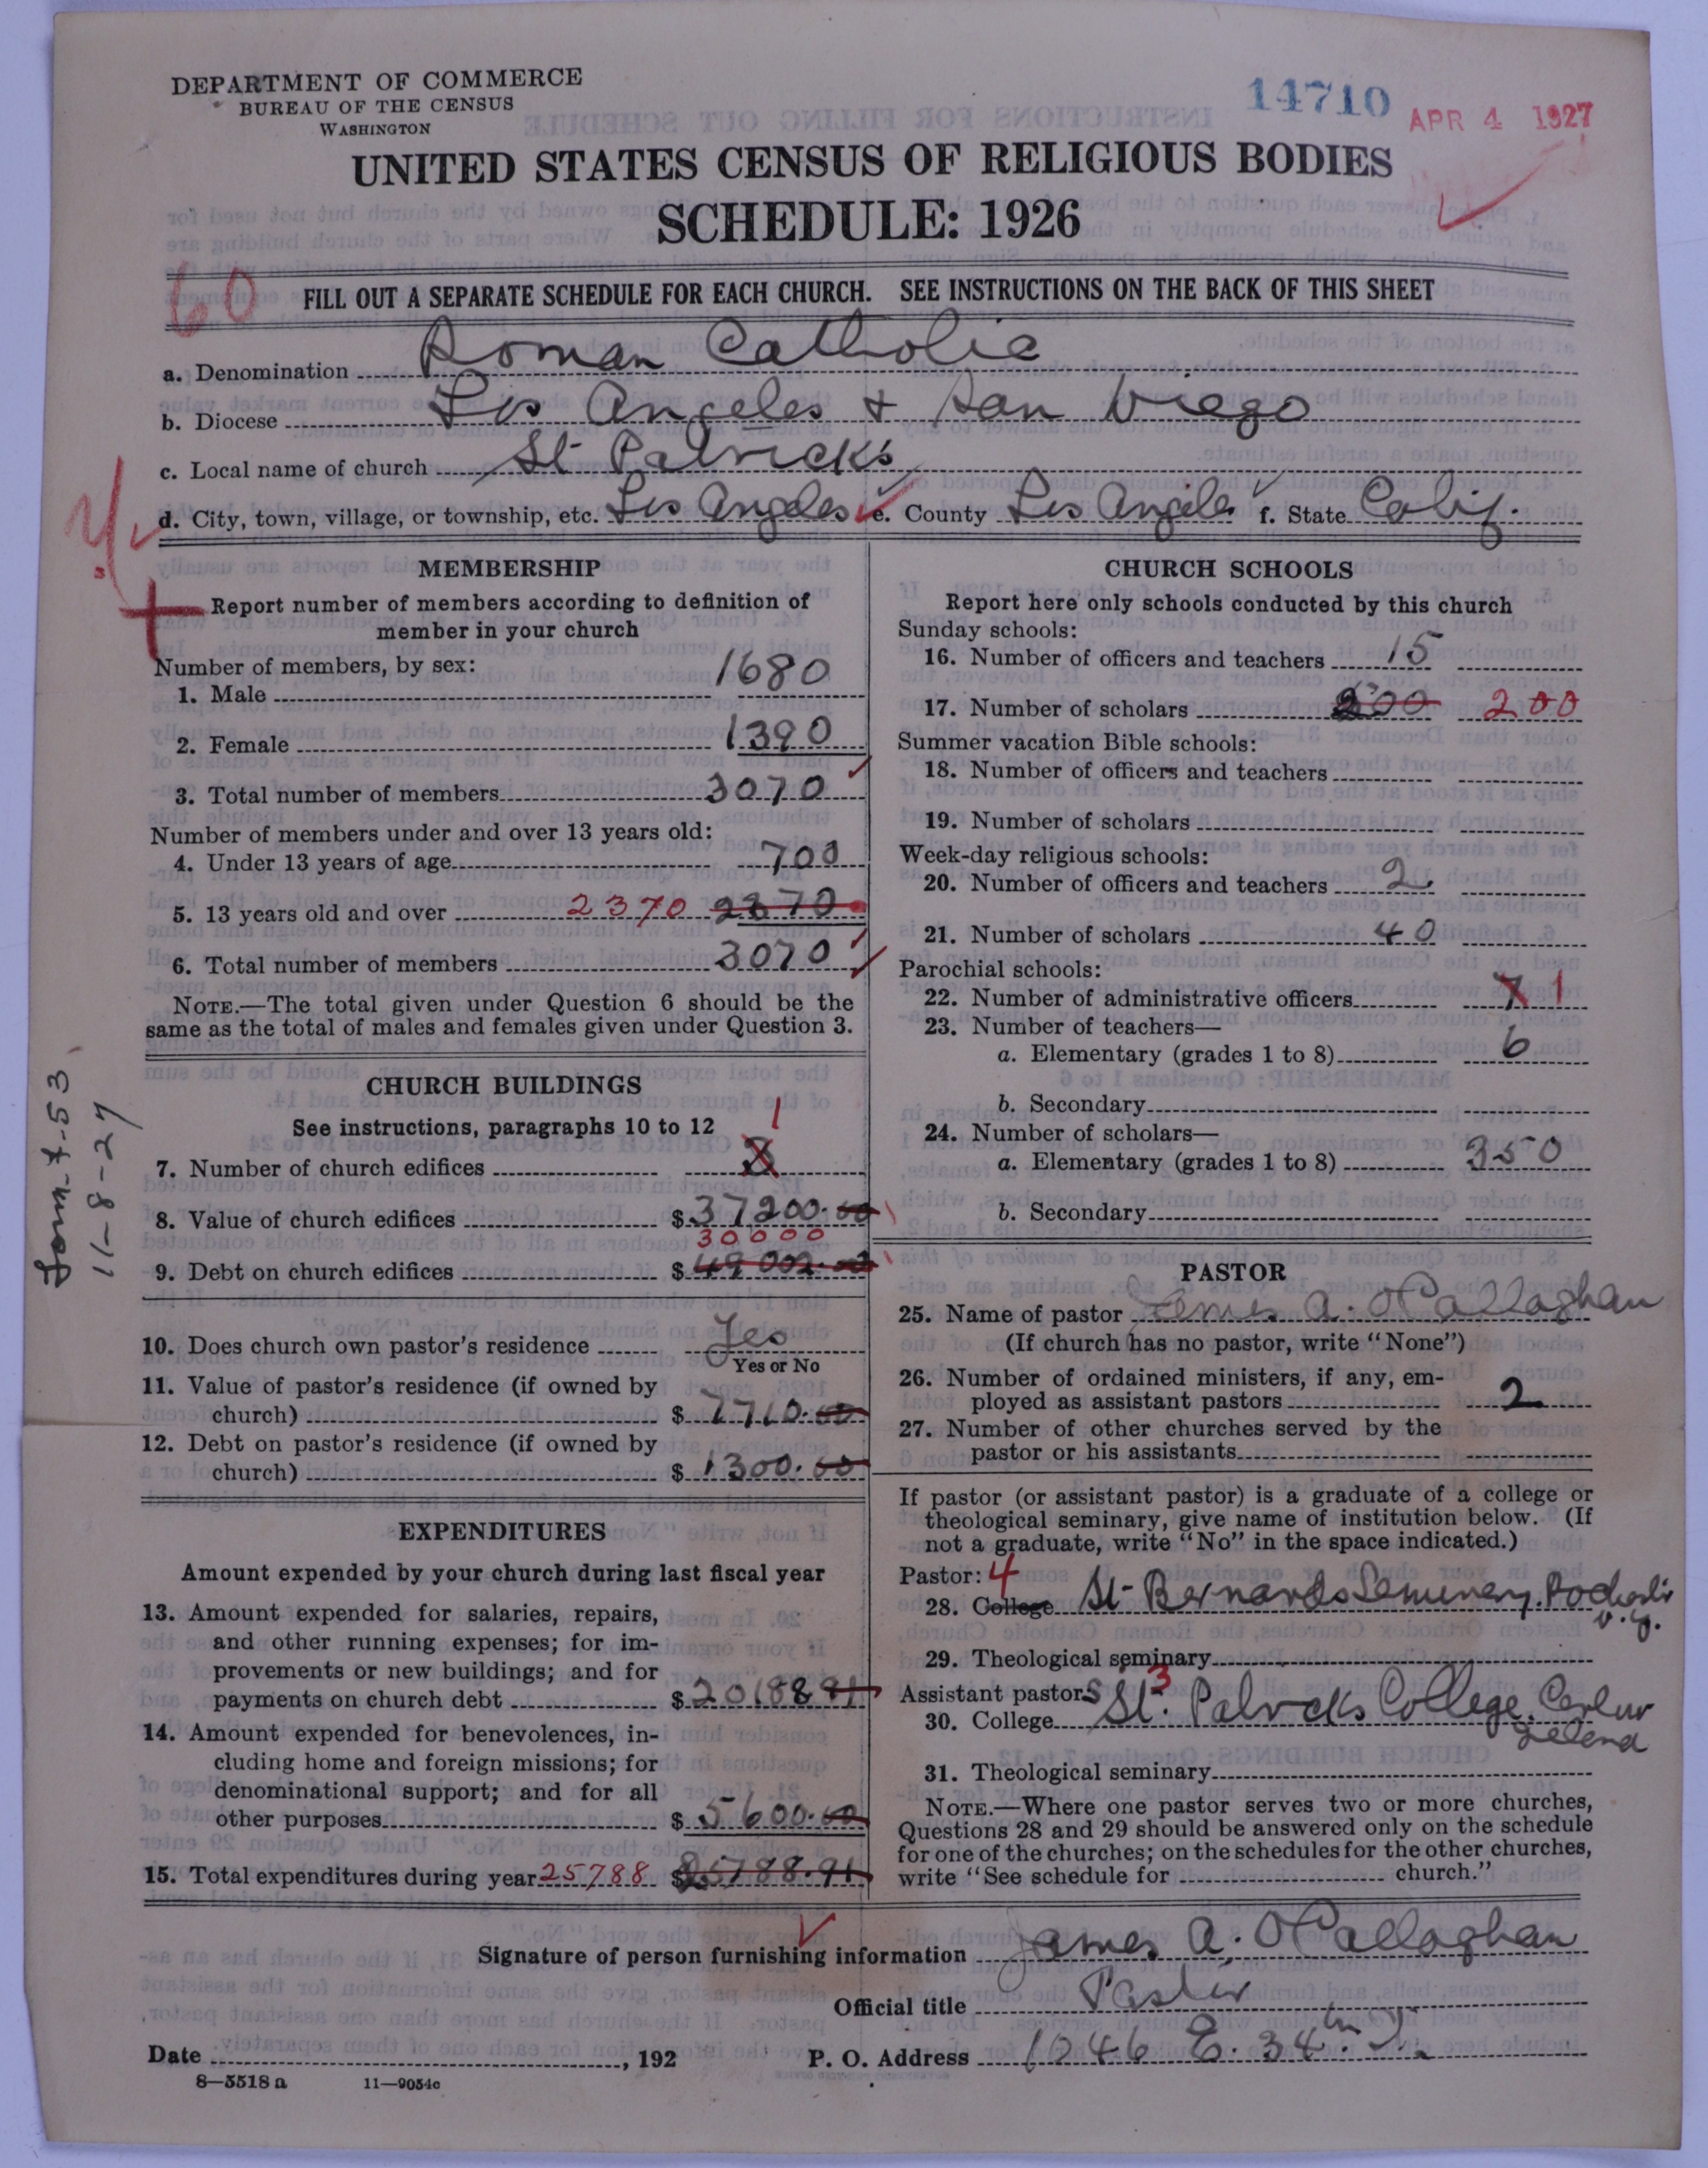 DEPARTMENT OF COMMERCE
BUREAU OF THE CENSUS
WASHINGTON
14710
APR 4 1927
UNITED STATES CENSUS OF RELIGIOUS BODIES
SCHEDULE: 1926
60
FILL OUT A SEPARATE SCHEDULE FOR EACH CHURCH. SEE INSTRUCTIONS ON THE BACK OF THIS SHEET
a. Denomination Roman Catholic
b. Diocese Los Angeles & San Diego
c. Local name of church St Patricks
d. City, town, village, or township, etc. Los Angeles e. County Los Angeles f. State Calif.
MEMBERSHIP
Report number of members according to definition of
member in your church
Number of members, by sex:
1. Male 1680
2. Female 1390
3. Total number of members 3070
Number of members under and over 13 years old:
4. Under 13 years of age 700
5. 13 years old and over 2370 2370
6. Total number of members 3070
NOTE.—The total given under Question 6 should be the
same as the total of males and females given under Question 3.
CHURCH BUILDINGS
See instructions, paragraphs 10 to 12
7. Number of church edifices 1
8. Value of church edifices $ 37200.00
30000
9. Debt on church edifices $ 49 002.00
10. Does church own pastor's residence Yes
Yes or No
11. Value of pastor's residence (if owned by
church) $ 7710.00
12. Debt on pastor's residence (if owned by
church) $ 1300.00
EXPENDITURES
Amount expended by your church during last fiscal year
13. Amount expended for salaries, repairs,
and other running expenses; for im-
provements or new buildings; and for
payments on church debt $ 20188 91
14. Amount expended for benevolences, in-
cluding home and foreign missions; for
denominational support; and for all
other purposes $ 5600.00
15. Total expenditures during year 25788 $ 25788.91
CHURCH SCHOOLS
Report here only schools conducted by this church
Sunday schools:
16. Number of officers and teachers 15
17. Number of scholars 200 200
Summer vacation Bible schools:
18. Number of officers and teachers
19. Number of scholars
Week-day religious schools:
20. Number of officers and teachers 2
21. Number of scholars 40
Parochial schools:
22. Number of administrative officers 7 1
23. Number of teachers—
a. Elementary (grades 1 to 8) 6
b. Secondary
24. Number of scholars—
a. Elementary (grades 1 to 8) 350
b. Secondary
PASTOR
25. Name of pastor James A. O'Callaghan
(If church has no pastor, write "None")
26. Number of ordained ministers, if any, em-
ployed as assistant pastors 2
27. Number of other churches served by the
pastor or his assistants
If pastor (or assistant pastor) is a graduate of a college or
theological seminary, give name of institution below. (If
not a graduate, write "No" in the space indicated.)
Pastor: 4
28. College St Bernards Seminary.
N.Y.
29. Theological seminary
Assistant pastors 3
30. College St. Patricks College,
Ireland
31. Theological seminary
NOTE.—Where one pastor serves two or more churches,
Questions 28 and 29 should be answered only on the schedule
for one of the churches; on the schedules for the other churches,
write "See schedule for church."
Signature of person furnishing information James A. O'Callaghan
Official title Pastor
Date , 192 P. O. Address 1046 E. 34th St.
8—5518 a 11—9054c
Form 7-53
11-8-27